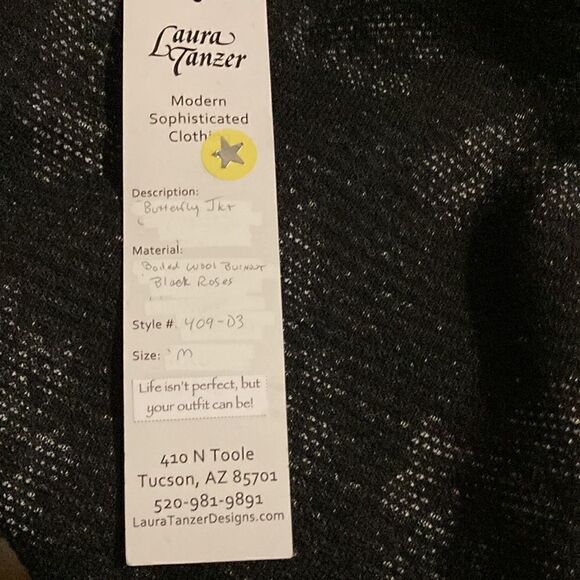 Laura
Tanzer
Modern
Sophisticated
Clothi
Description:
Butterfly Jkt
Material:
Boiled Wool Burnout
Black Roses
Style # 409-03
Size: M
Life isn't perfect, but
your outfit can be!
410 N Toole
Tucson, AZ 85701
520-981-9891
LauraTanzerDesigns.com